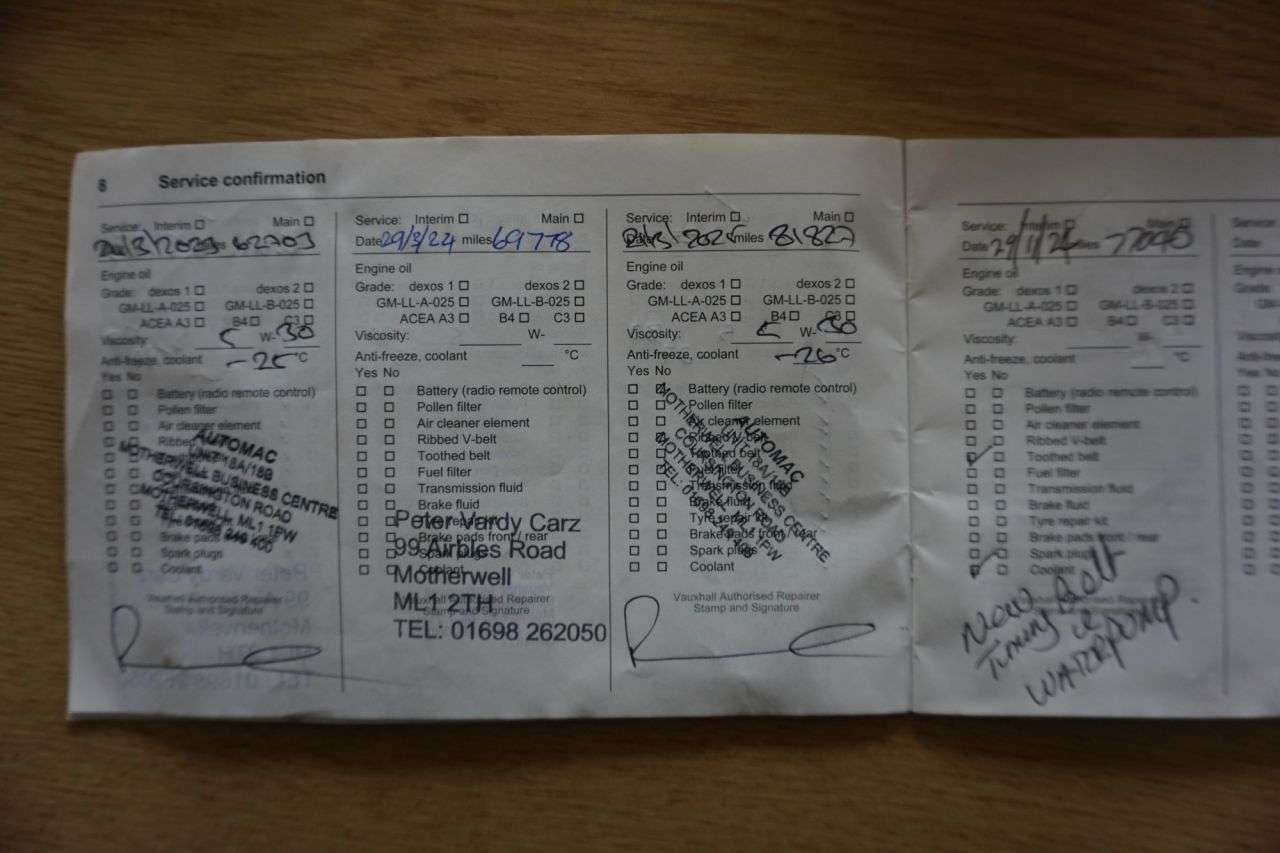 8 Service confirmation
Service: Interim Main
2023 62703
Engine oil
Grade: dexos 1 dexos 2
GM-LL-A-025 GM-LL-B-025
ACEA A3 B4 C3
Viscosity: 5 W-30
Anti-freeze, coolant -25 °C
Yes No
Battery (radio remote control)
Pollen filter
Air cleaner element
Ribbed
Brake pads
Spark plugs
Coolant
AUTOMAC
UNIT 18A/18B
MOTHERWELL BUSINESS CENTRE
COURSINGTON ROAD
MOTHERWELL ML1 1PW
Vauxhall Authorised Repairer
Stamp and Signature
Service: Interim Main
Date 29/3/24 miles 69778
Engine oil
Grade: dexos 1 dexos 2
GM-LL-A-025 GM-LL-B-025
ACEA A3 B4 C3
Viscosity: W-
Anti-freeze, coolant °C
Yes No
Battery (radio remote control)
Pollen filter
Air cleaner element
Ribbed V-belt
Toothed belt
Fuel filter
Transmission fluid
Brake fluid
Brake pads front / rear
Peter Vardy Carz
99 Airbles Road
Motherwell
ML1 2TH
TEL: 01698 262050
Authorised Repairer
Stamp and Signature
Service: Interim Main
2025 miles 81827
Engine oil
Grade: dexos 1 dexos 2
GM-LL-A-025 GM-LL-B-025
ACEA A3 B4 C3
Viscosity: 5 W-30
Anti-freeze, coolant -26 °C
Yes No
Battery (radio remote control)
Pollen filter
Air cleaner element
Ribbed V-belt
Toothed belt
Fuel filter
Transmission fluid
Brake fluid
Tyre repair kit
Brake pads front / rear
Spark plugs
Coolant
AUTOMAC
UNIT 18A/18B
MOTHERWELL BUSINESS CENTRE
COURSINGTON ROAD
MOTHERWELL ML1 1PW
Vauxhall Authorised Repairer
Stamp and Signature
Service: Interim Main
Date 29/11/24
Engine oil
Grade: dexos 1 dexos 2
GM-LL-A-025 GM-LL-B-025
ACEA A3 B4 C3
Viscosity: W-
Anti-freeze, coolant °C
Yes No
Battery (radio remote control)
Pollen filter
Air cleaner element
Ribbed V-belt
Toothed belt
Fuel filter
Transmission fluid
Brake fluid
Tyre repair kit
Brake pads front / rear
Spark plugs
Coolant
New
Timing Belt
&
WATERPUMP
Service
Date
Engine
Grade: